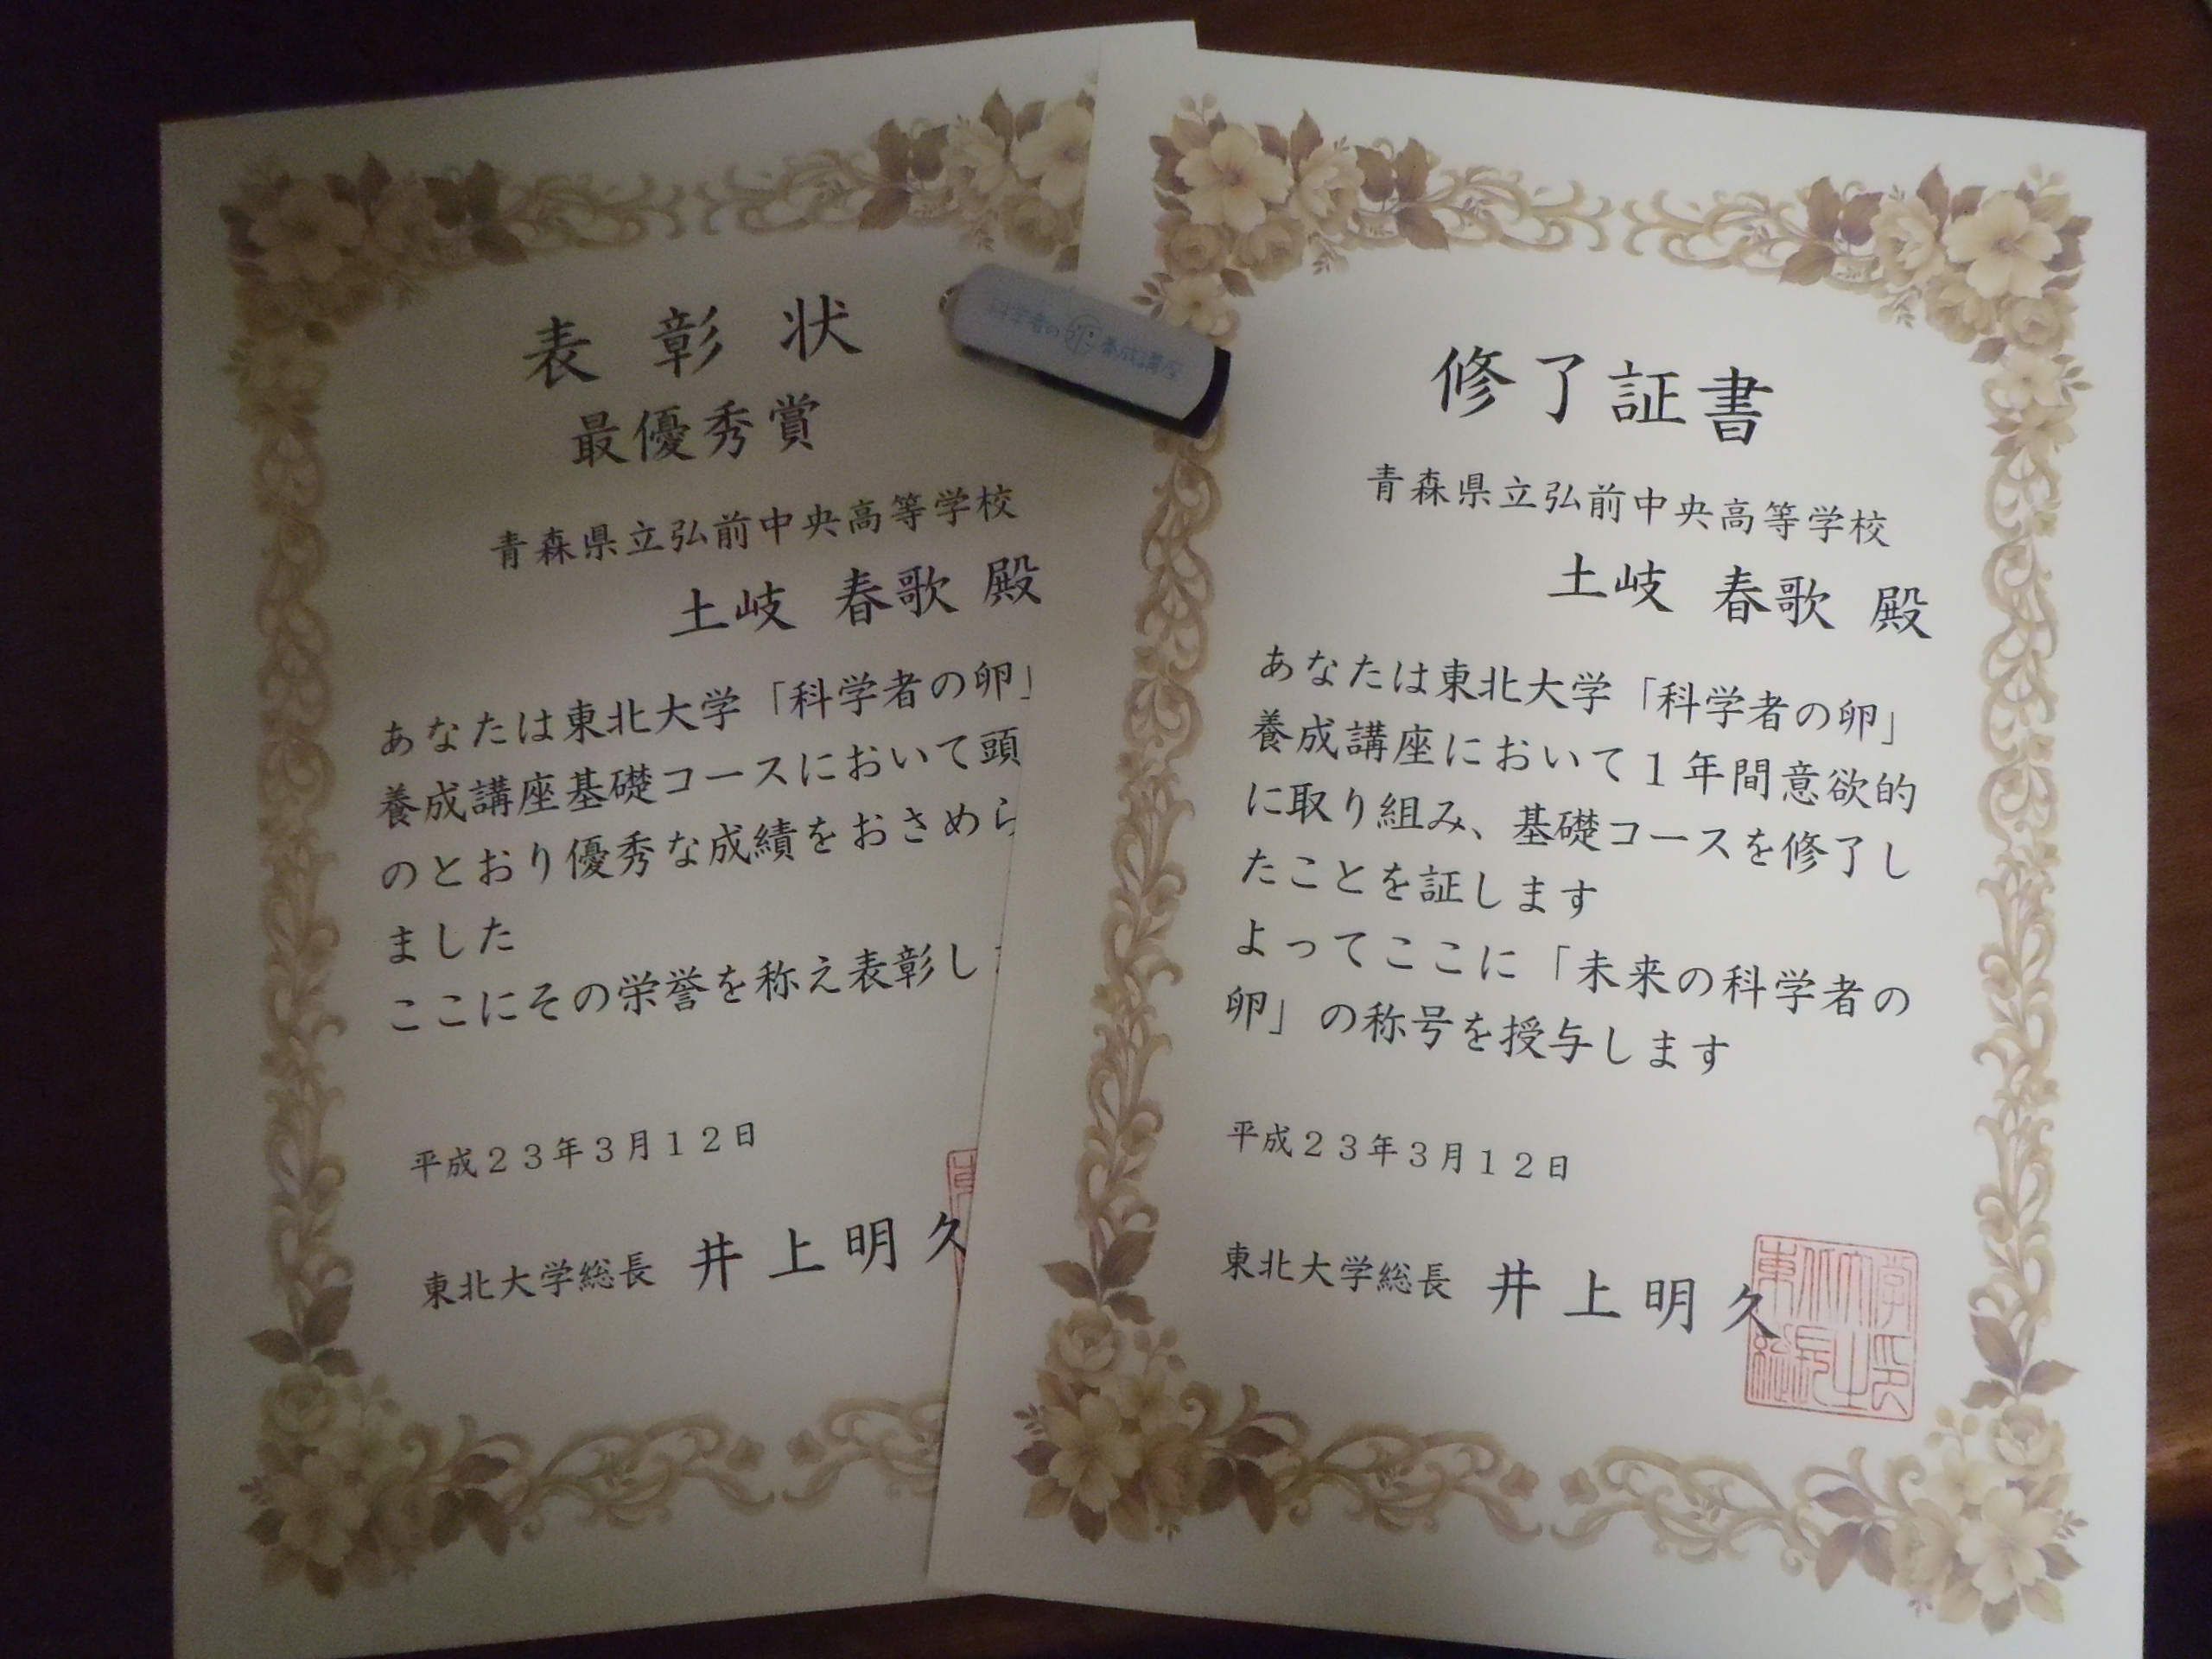 表彰状
最優秀賞
青森県立弘前中央高等学校
土岐 春歌 殿
あなたは東北大学「科学者の卵」
養成講座基礎コースにおいて頭
のとおり優秀な成績をおさめら
ました
ここにその栄誉を称え表彰し
平成23年3月12日
東北大学総長 井上明久
科学者の卵養成講座
修了証書
青森県立弘前中央高等学校
土岐 春歌 殿
あなたは東北大学「科学者の卵」
養成講座において1年間意欲的
に取り組み、基礎コースを修了し
たことを証します
よってここに「未来の科学者の
卵」の称号を授与します
平成23年3月12日
東北大学総長 井上明久
東北大学総長之印